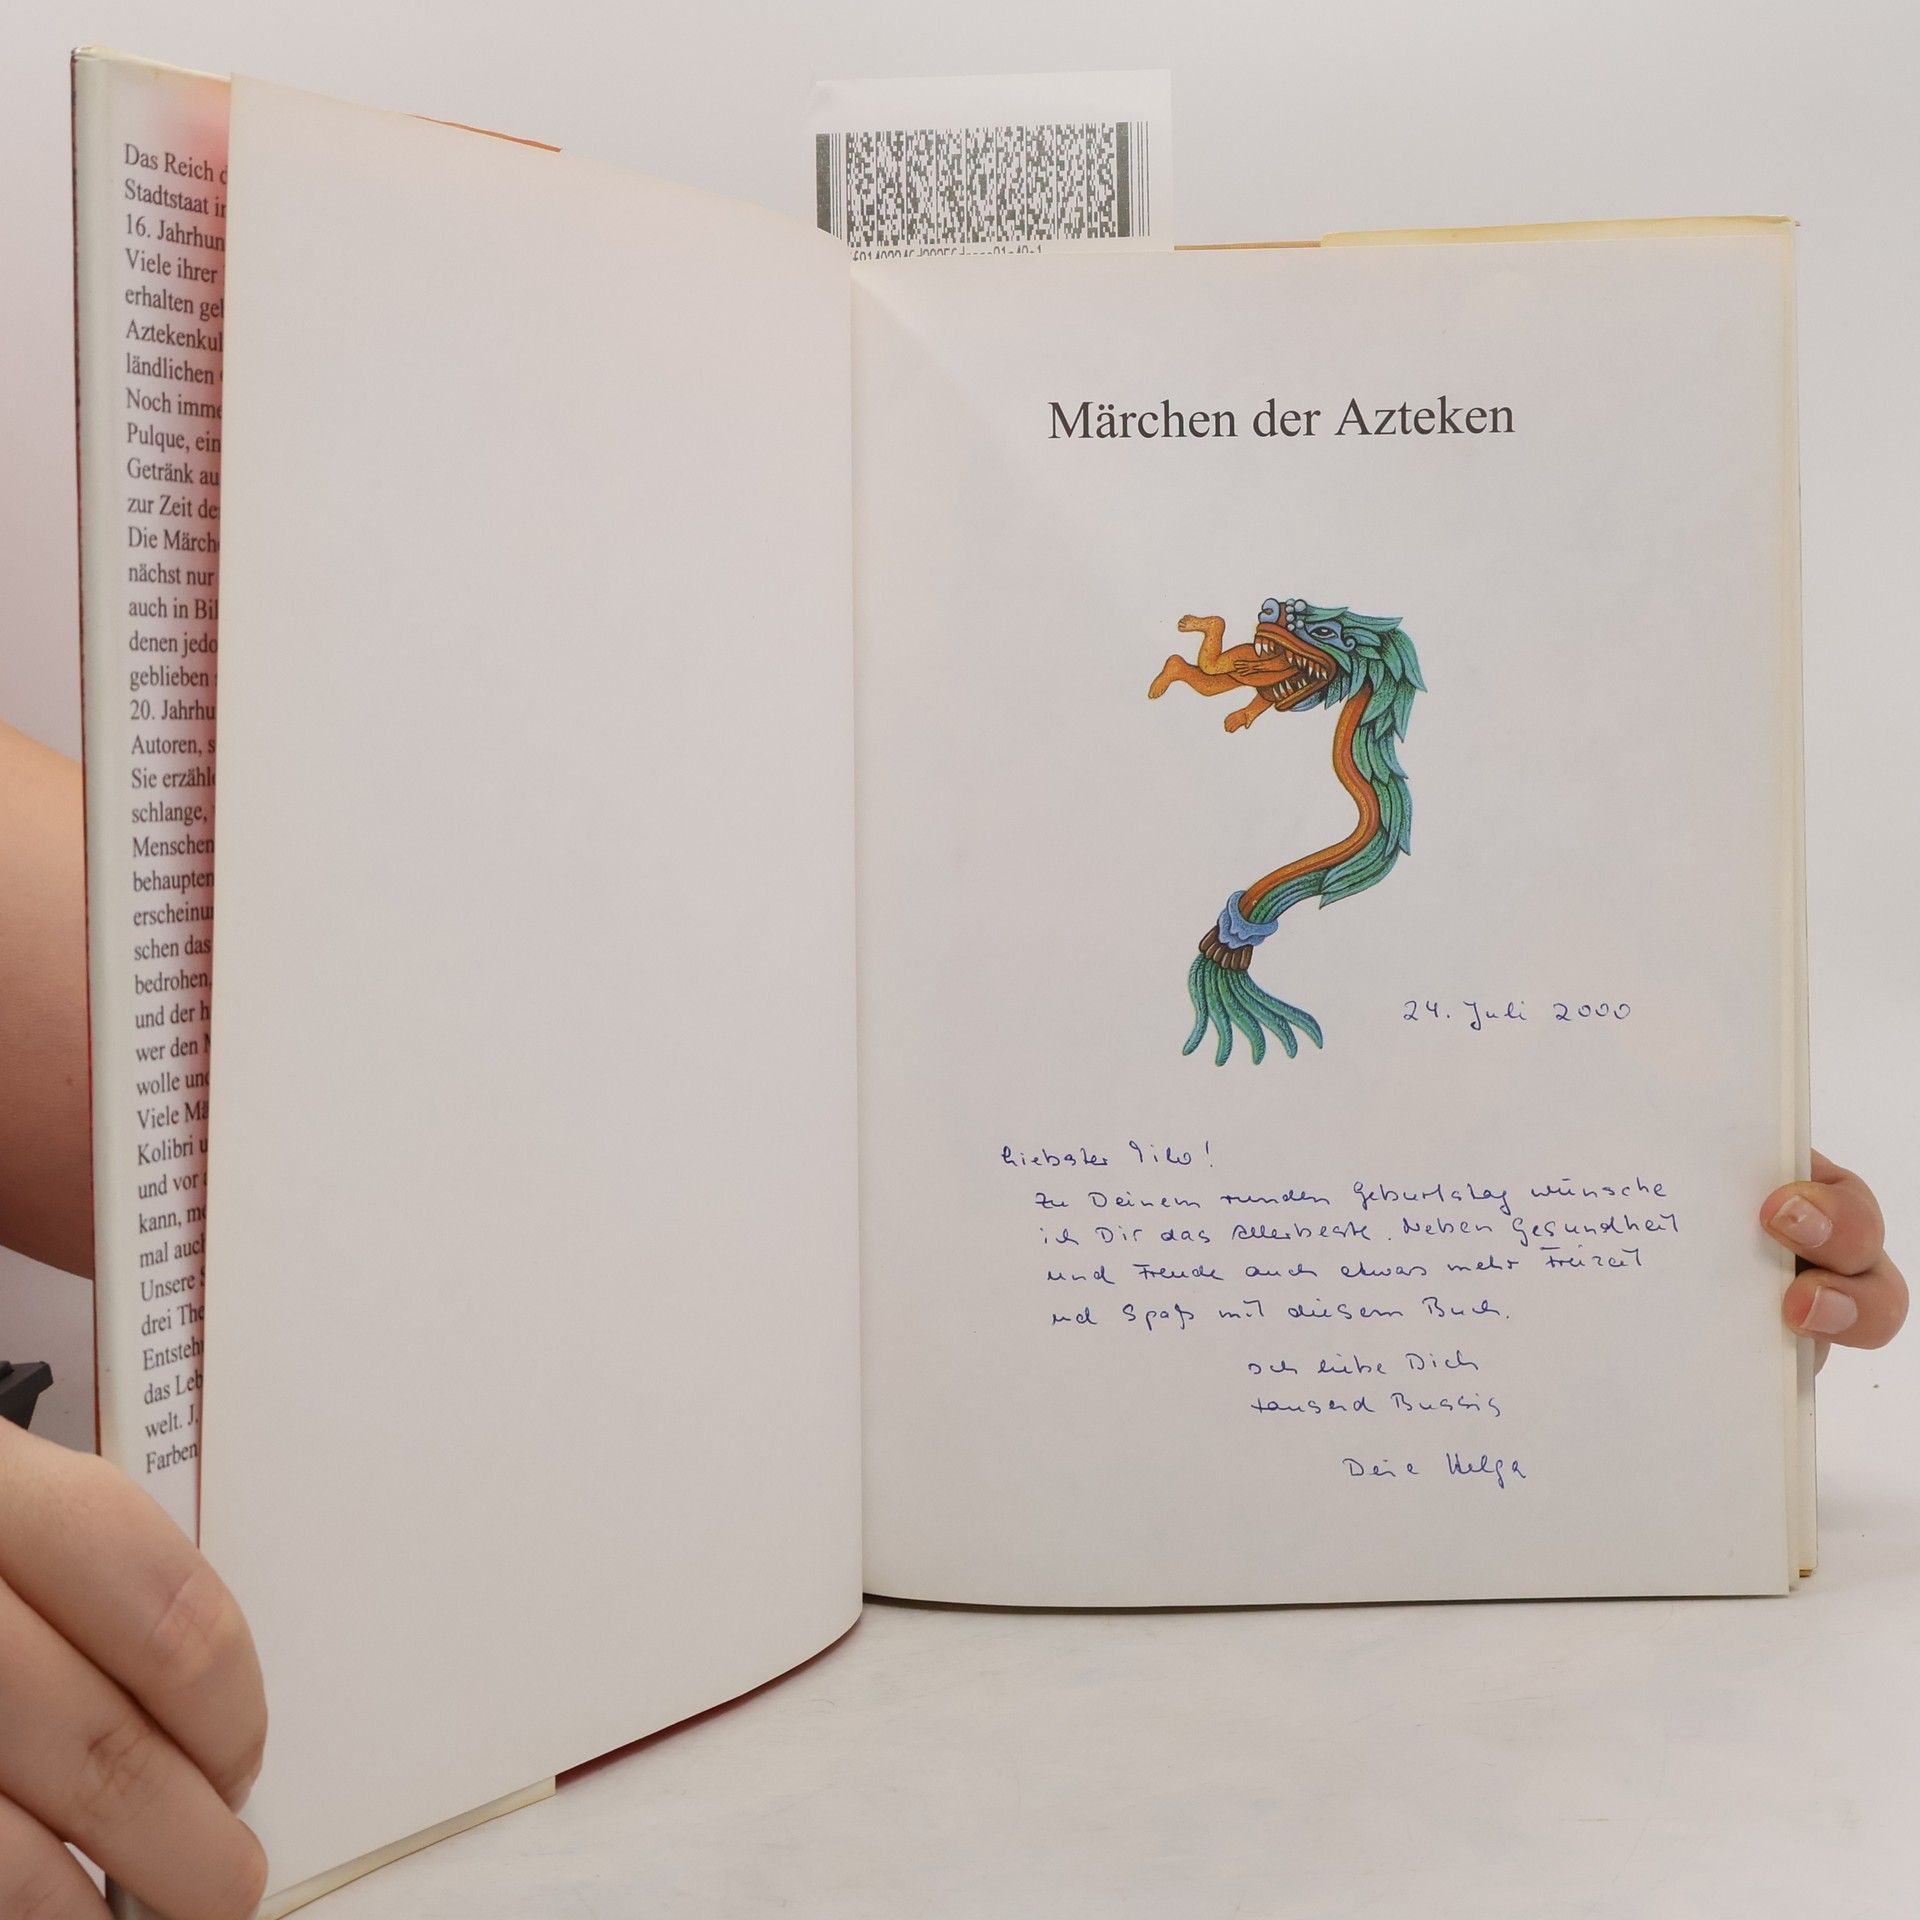 Das Reich d
Stadtstaat in
16. Jahrhun
Viele ihrer
erhalten gel
Aztekenkul
ländlichen
Noch imme
Pulque, ein
Getränk au
zur Zeit de
Die Märch
nächst nur
auch in Bil
denen jedo
geblieben
20. Jahrhu
Autoren, s
Sie erzähle
schlange,
Menschen
behaupten
erscheinu
schen das
bedrohen,
und der h
wer den
wolle und
Viele Mä
Kolibri u
und vor
kann, me
mal auch
Unsere S
drei The
Entsteh
das Leb
welt. J.
Farben
Märchen der Azteken
24. Juli 2000
Liebster Tilo!
Zu Deinem runden Geburtstag wünsche
ich Dir das Allerbeste. Neben Gesundheit
und Freude auch etwas mehr Freizeit
und Spaß mit diesem Buch.
Ich liebe Dich
tausend Bussis
Deine Helga